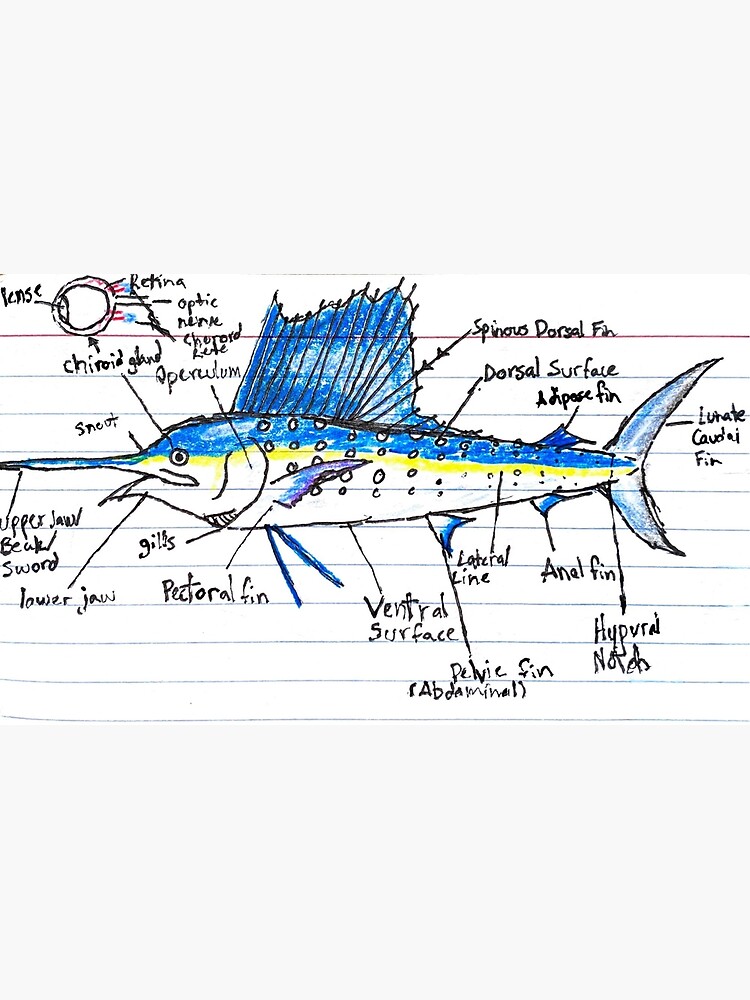 lense
Retina
optic
nerve
choroid
Rete
chiroid gland
Operculum
Spinous Dorsal Fin
Dorsal Surface
Adipose fin
snout
Lunate
Caudal
Fin
upper jaw/
Beak/
Sword
lower jaw
gills
Pectoral fin
Ventral
Surface
Lateral
Line
Anal fin
Hypural
Notch
Pelvic fin
(Abdominal)